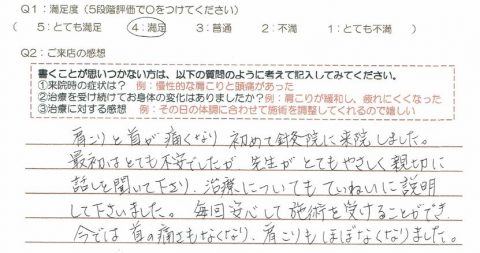 Q1：満足度（5段階評価で○をつけてください）
（ 5：とても満足 4：満足 3：普通 2：不満 1：とても不満 ）
Q2：ご来店の感想
書くことが思いつかない方は、以下の質問のように考えて記入してみてください。
①来院時の症状は？ 例：慢性的な肩こりと頭痛があった
②治療を受け続けてお身体の変化はありましたか？ 例：肩こりが緩和し、疲れにくくなった
③治療に対する感想 例：その日の体調に合わせて施術を調整してくれるので嬉しい
肩こりと首が痛くなり 初めて鍼灸院に来院しました。
最初はとても不安でしたが、先生が とてもやさしく親切に
話しを聞いて下さり、治療についても ていねいに説明
して下さいました。 毎回安心して施術を受けることができ、
今では 首の痛さもなくなり、肩こりも ほぼなくなりました。